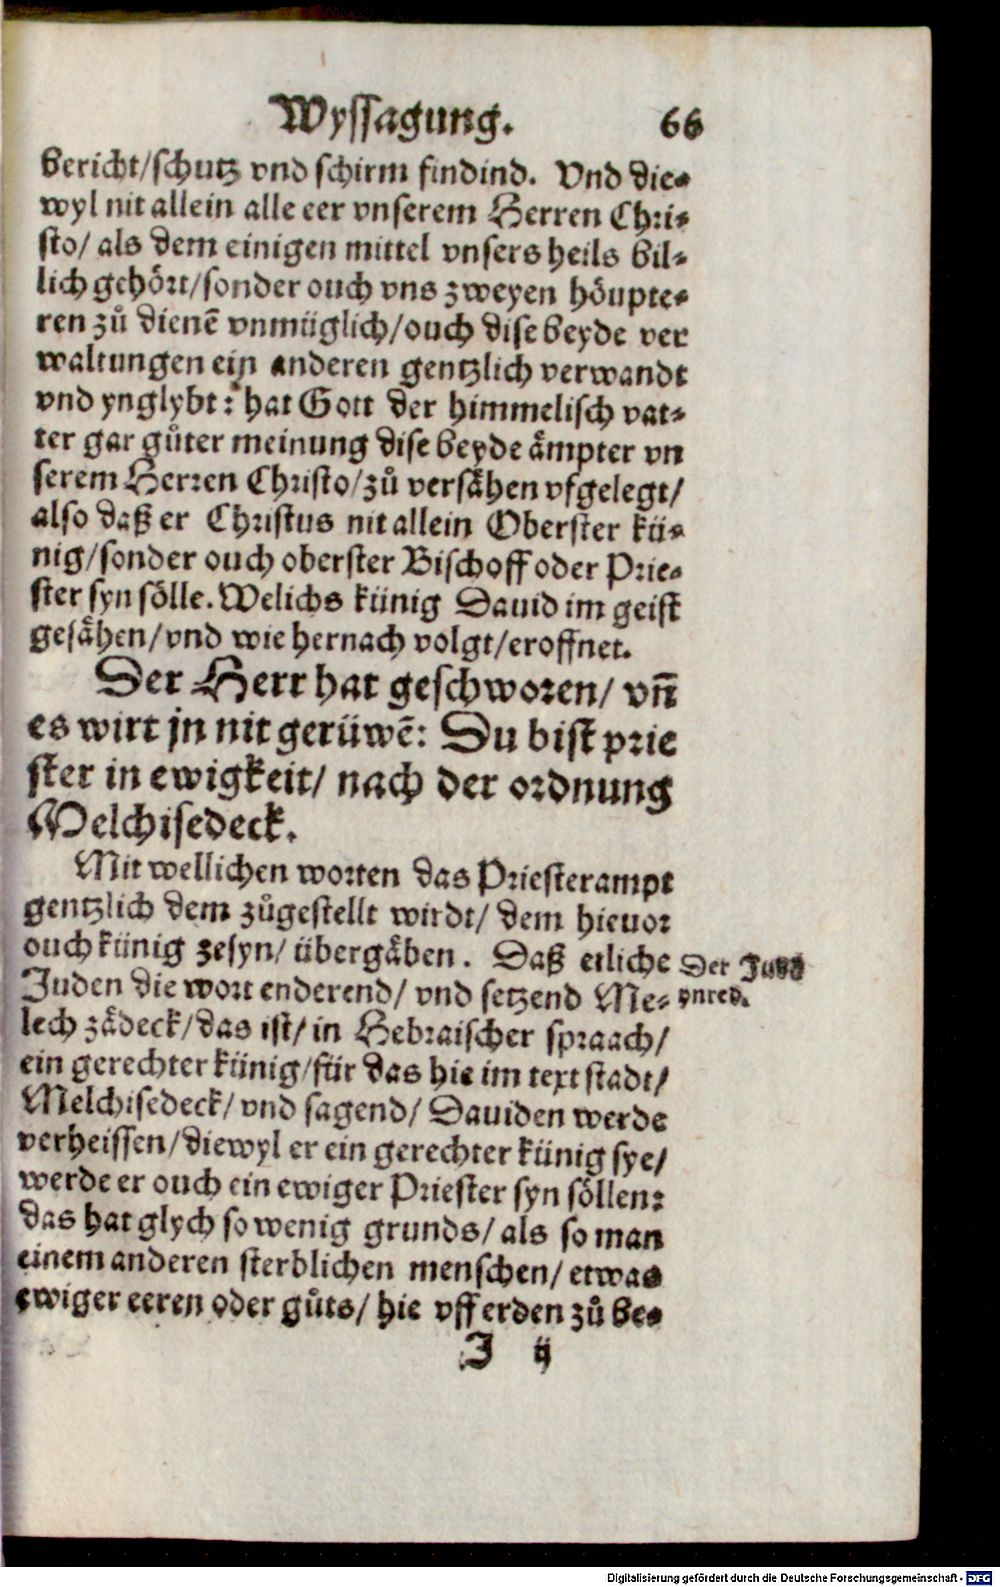 Wyssagung. 66
bericht/schutz vnd schirm findind. Vnd die-
wyl nit allein alle eer vnserem Herren Chri-
sto/ als dem einigen mittel vnsers heils bil-
lich gehört/sonder ouch vns zweyen höupte-
ren zů dienē vnmüglich/ouch dise beyde ver
waltungen ein anderen gentzlich verwandt
vnd ynglybt: hat Gott der himmelisch vat-
ter gar gůter meinung dise beyde ämpter vn
serem Herren Christo/zů versähen vfgelegt/
also daß er Christus nit allein Oberster kü-
nig/sonder ouch oberster Bischoff oder Prie-
ster syn sölle. Welichs künig Dauid im geist
gesähen/vnd wie hernach volgt/eroffnet.
Der Herr hat geschworen/ vñ
es wirt jn nit gerüwē: Du bist prie
ster in ewigkeit/ nach der ordnung
Melchisedeck.
Mit wellichen worten das Priesterampt
gentzlich dem zůgestellt wirdt/ dem hieuor
ouch künig zesyn/ übergäben. Daß etliche
Juden die wort enderend/ vnd setzend Me-
lech zädeck/das ist/ in Hebraischer spraach/
ein gerechter künig/für das hie im text stadt/
Melchisedeck/ vnd sagend/ Dauiden werde
verheissen/diewyl er ein gerechter künig sye/
werde er ouch ein ewiger Priester syn söllen:
das hat glych so wenig grunds/ als so man
einem anderen sterblichen menschen/ etwas
ewiger eeren oder gůts/ hie vff erden zů be-
J ij
Der Judē
ynred.
Digitalisierung gefördert durch die Deutsche Forschungsgemeinschaft - DFG